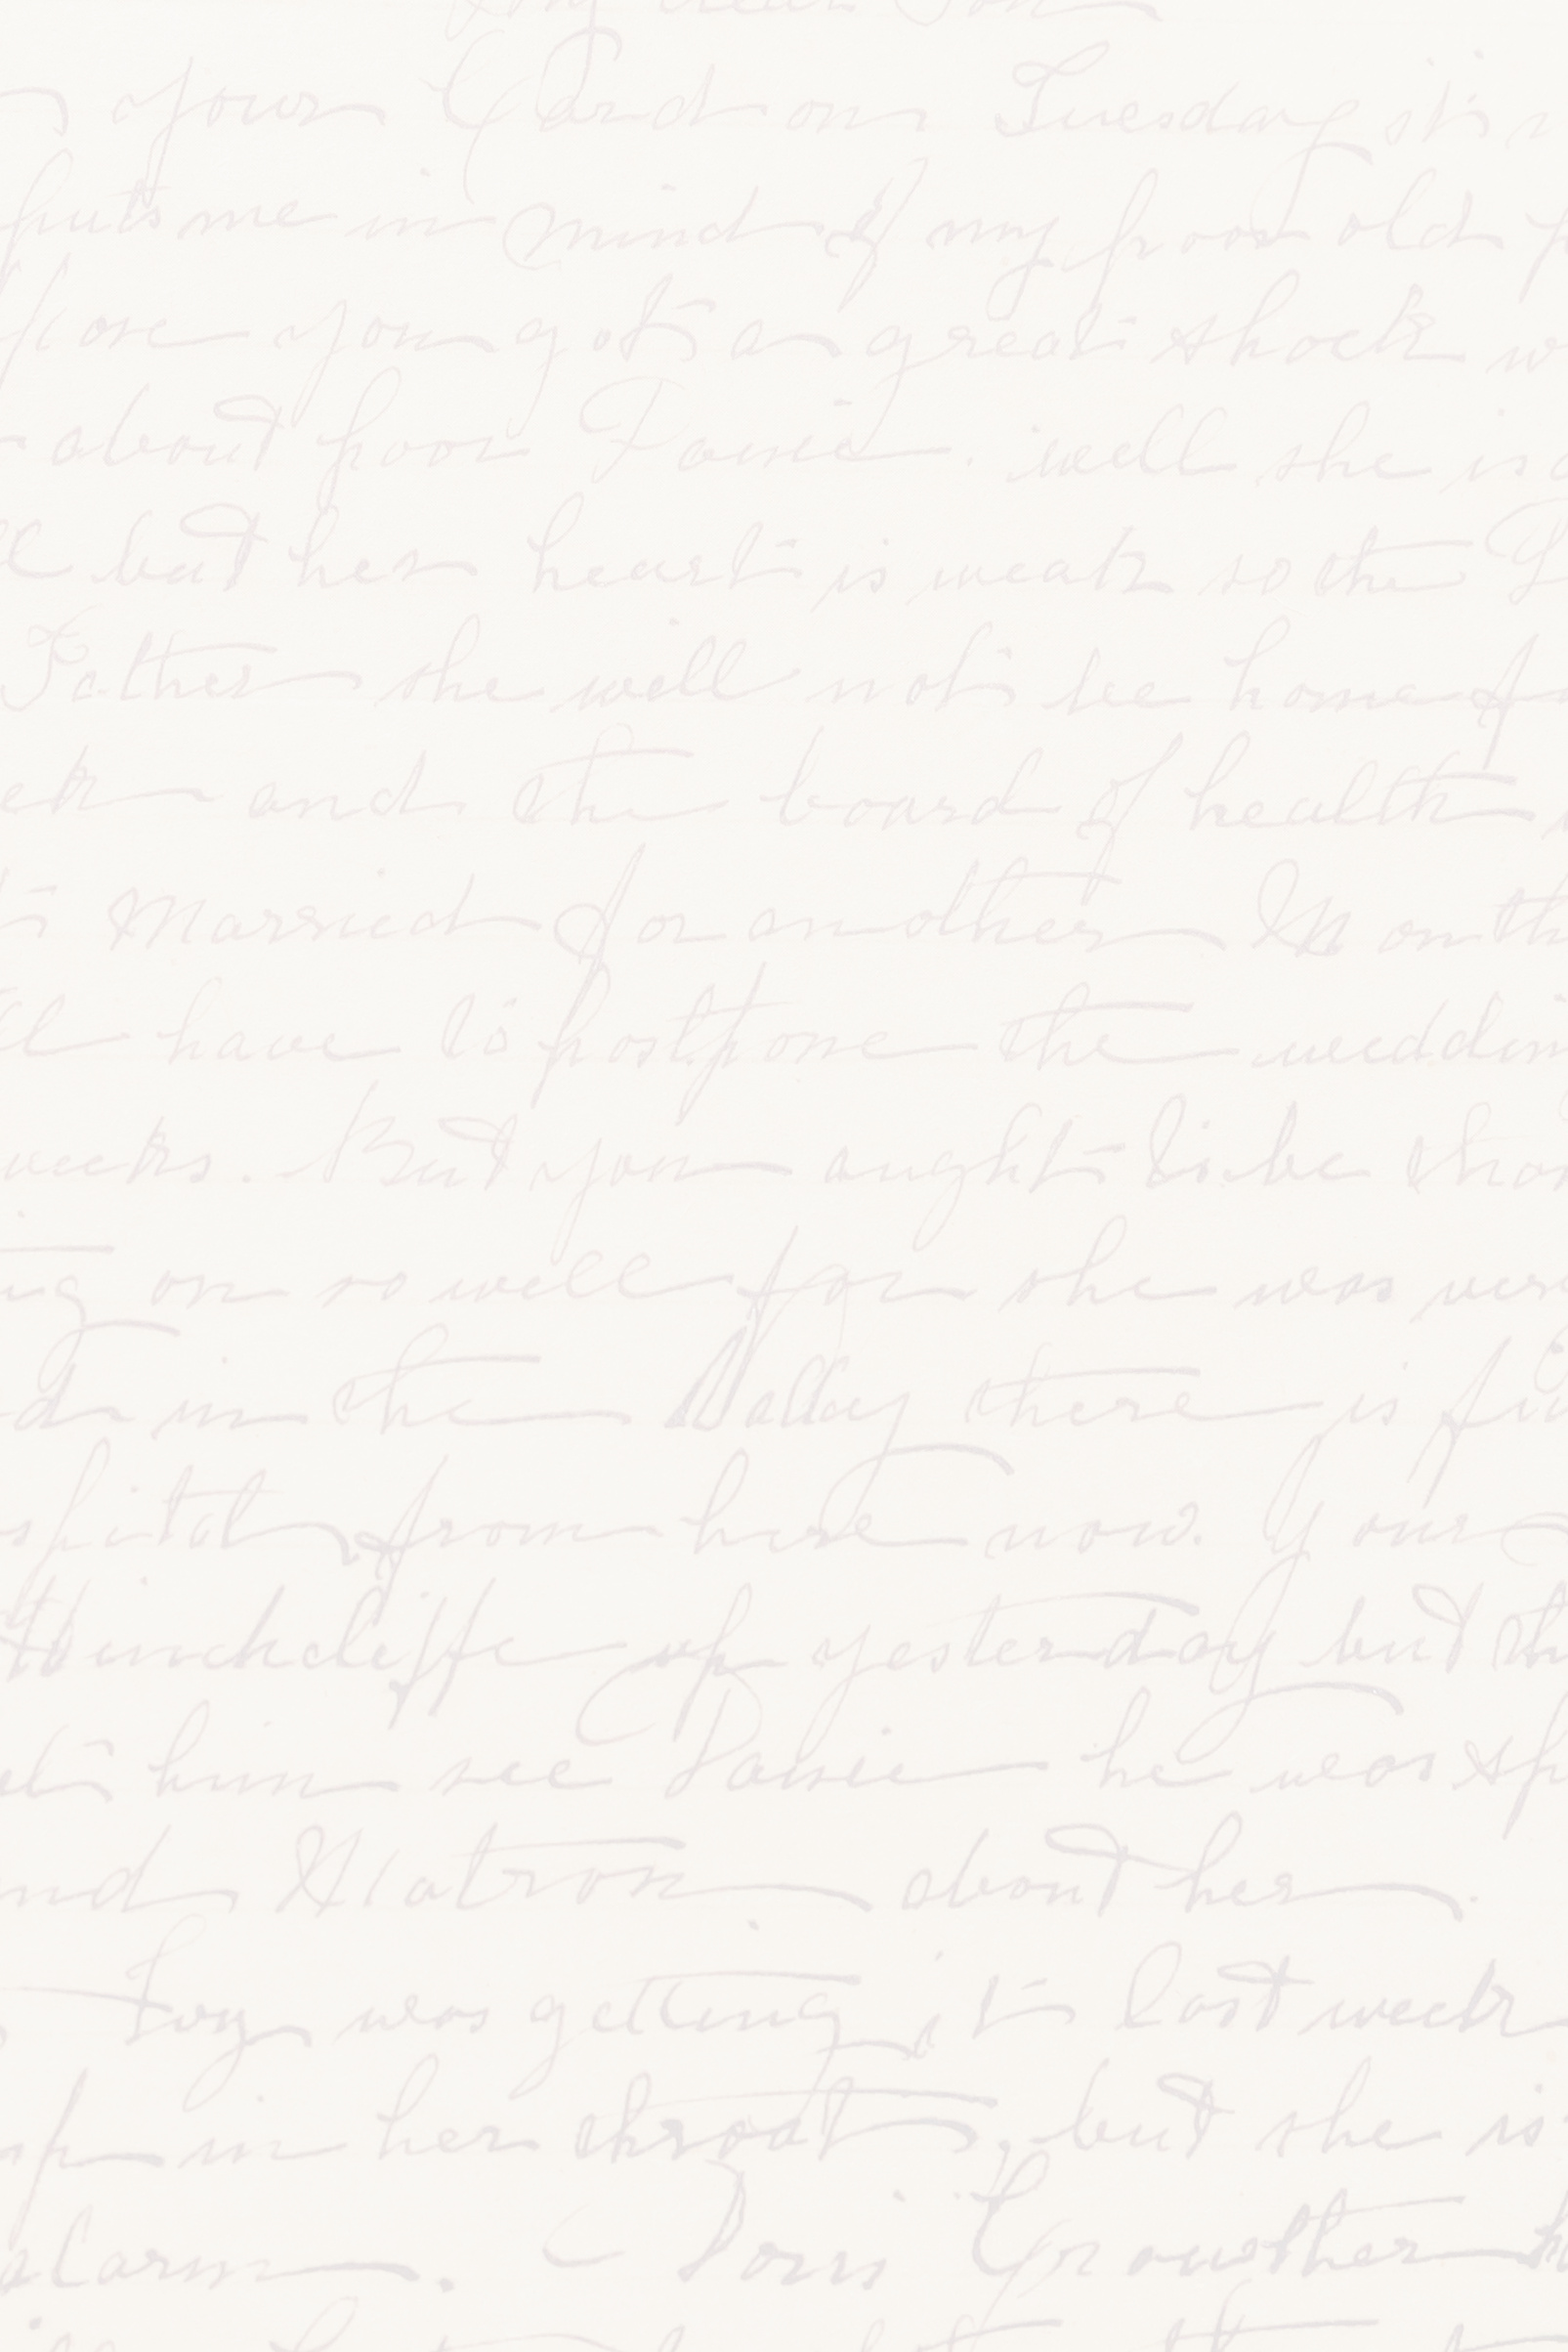 My dear Son
your Card on Tuesday it's
puts me in mind of my poor old
you got a great shock
about poor Janie. well she is
but her heart is weak so the
Father she will not be home
and the board of health
Married for another Month
have to postpone the weddin
weeks. But you ought to be
on so well for she was ver
in the Valley there is
from here now. Your
Hinchcliffe up yesterday but th
him see Janie he was sp
nd Matron about her.
Ivy was getting it last week
in her throat, but she is
alarm. Doris Crowther